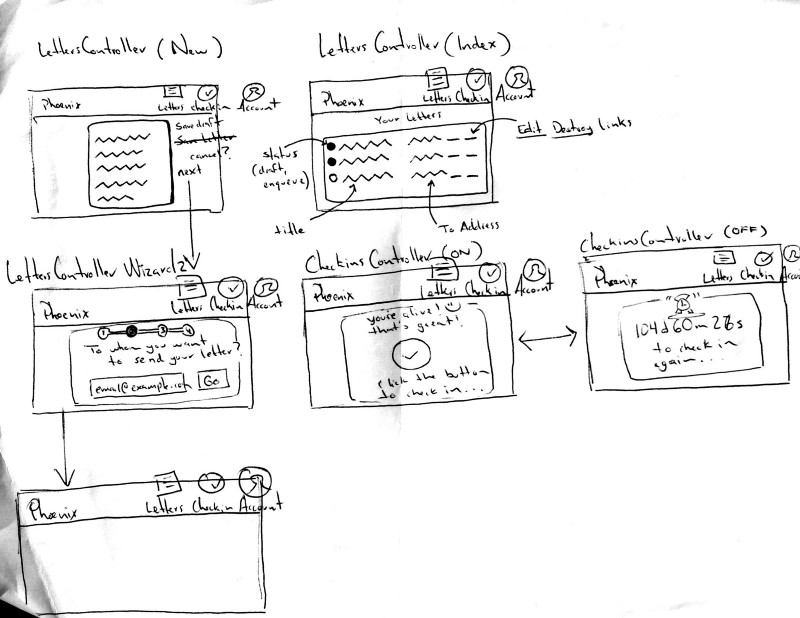 LettersController (New)
Phoenix
Letters Checkin Account
Save draft
Save Letter
cancel?
next
Letters Controller (Index)
Phoenix
Letters Checkin Account
Your Letters
Edit Destroy links
status
(draft,
enqueue)
title
To Address
LettersController Wizard2
Phoenix
Letters Checkin Account
1 2 3 4
To whom you want
to send your letter?
email@example.com Go
CheckinsController (ON)
Phoenix
Letters Checkin Account
you're alive!
that's great!
Click the button
to check in...
CheckinsController (OFF)
Phoenix
Letters Checkin Account
104d60m28s
to check in
again....
Phoenix
Letters Checkin Account